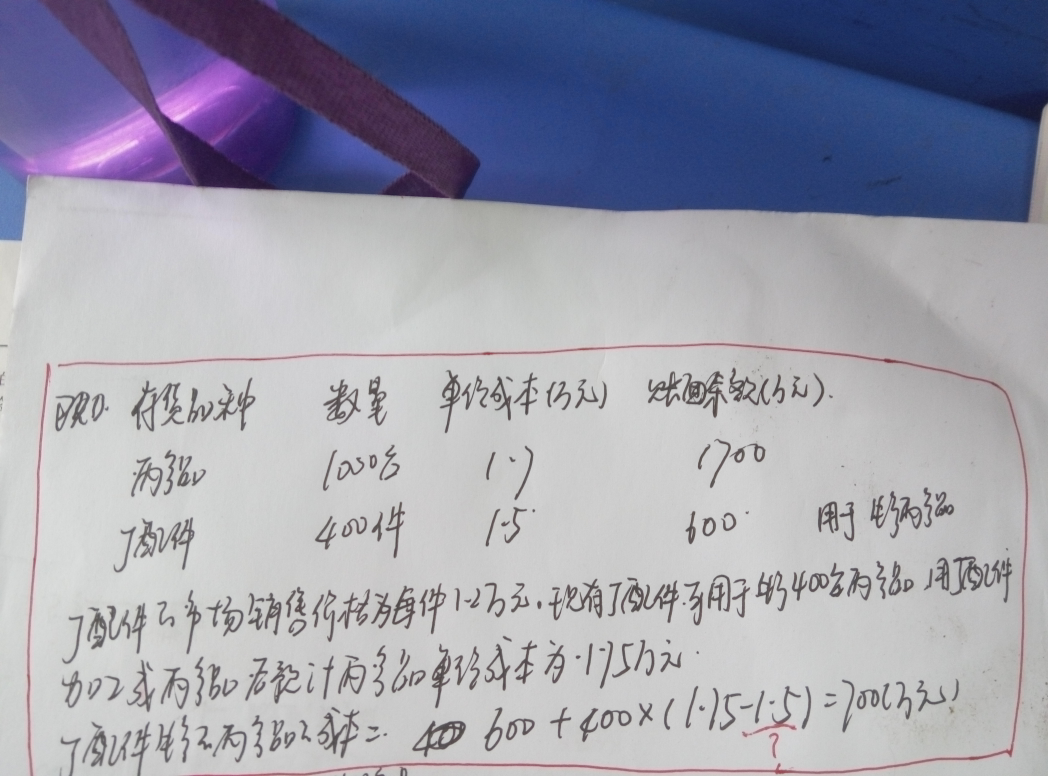 存货品种 数量 单位成本(万元) 账面余额(万元).
丙产品 1000台 1.7 1700
丁配件 400件 1.5 600 用于生产丙产品
丁配件的市场销售价格为每件1.2万元。现有丁配件可用于生产400台丙产品,用丁配件
加工成丙产品后预计丙产品单位成本为1.75万元.
丁配件生产的丙产品之成本= 600 + 400×(1.75-1.5)=700(万元)
?